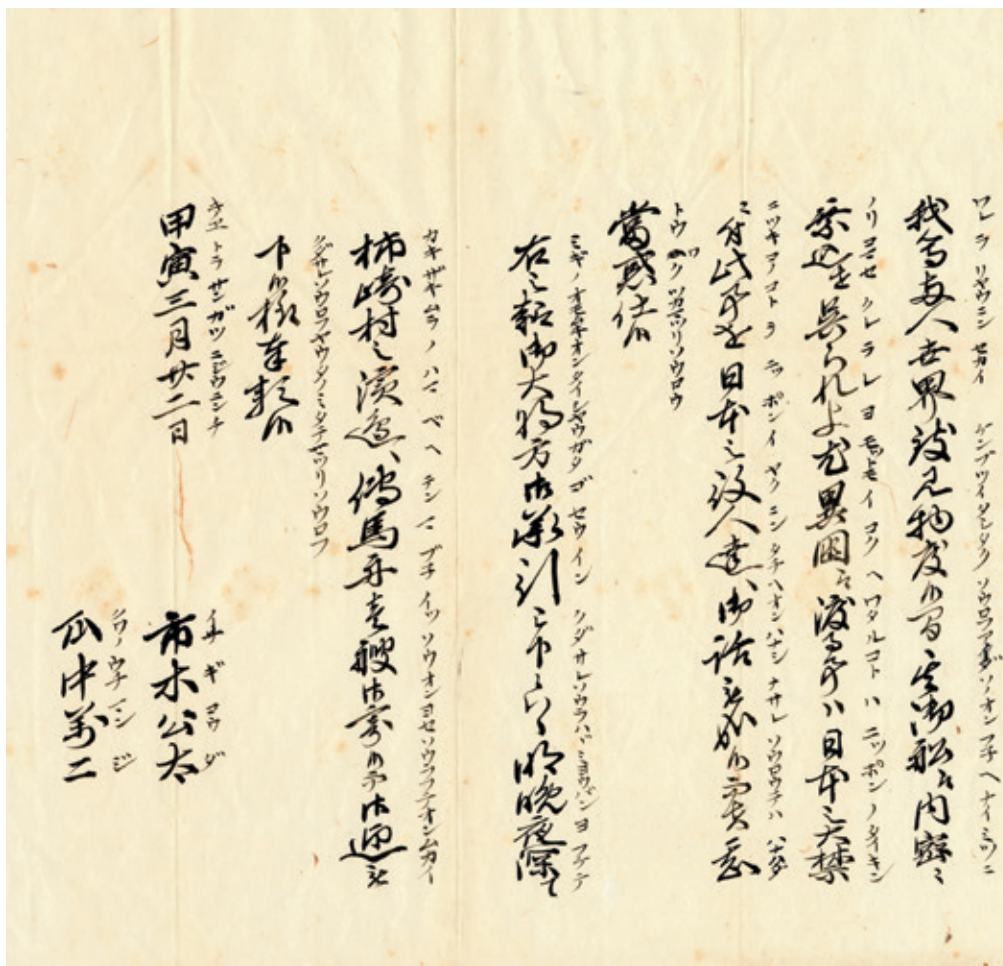 ワレラ リヤウニン セカイ ケンブツイタシタク ソウロフアイダソノオンフ子ヘナイミツニ
我等両人世界致見物度候間其御船江内密ニ
ノリコマセ クレラレヨ モツトモイコクヘワタルコトハ ニツポンノタイキン
乗込せ呉られよ尤異国江渡る事ハ日本之大禁
ニツキコノコトヲ ニツポンノヤクニンタチヘオンハナシナサレソウロウテハ ハナハダ
ニ付此事を日本之役人達へ御話被成候而ハ甚
トウワクツカマツリソウロウ
當惑仕候
ミギノオモムキオンタイシヤウガタゴセウイン クダサレソウラハバミヨウバンヨフケテ
右之趣御大将方御承引被下候ハヽ明晩夜深て
カキザキムラノハマベヘテンマブ子イツソウオンヨセソウラフテオンムカイ
柿崎村之濱邊へ傳馬舟壱艘御寄候而御迎被
クダサレソウロフヤウタノミタテマツリソウロフ
下候様奉頼候
キエトラサンガツニジウニニチ
甲寅三月廿二日
イチギコウダ
市木公太
クワノウチマンジ
瓜中萬二